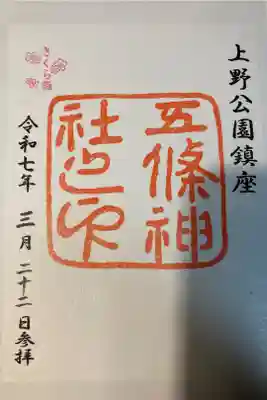 上野公園鎮座
五條神
社之印
さくら詣
令和七年 三月 二十二日参拝